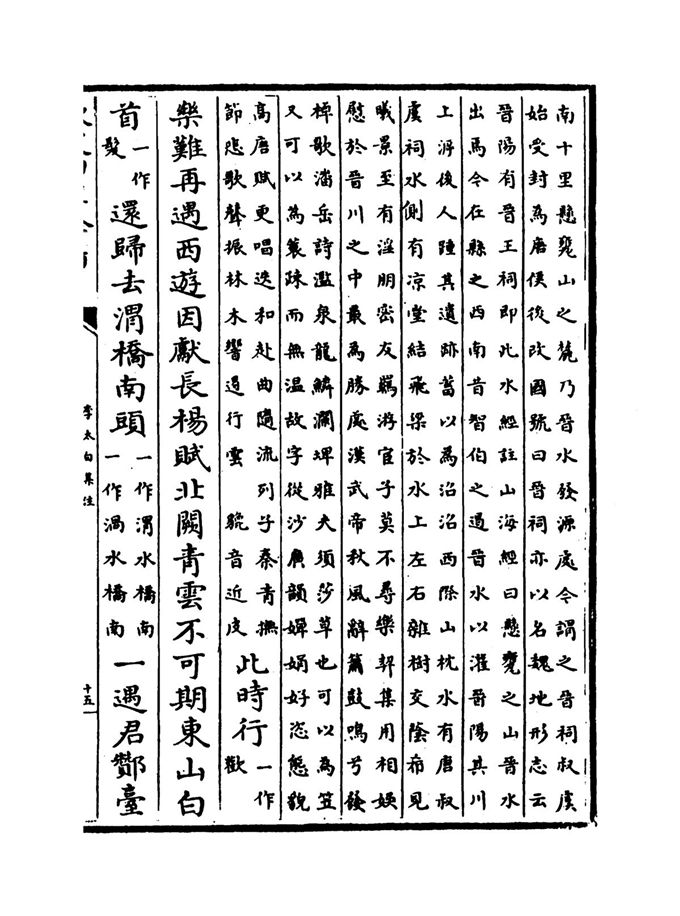 南十里懸甕山之麓乃晉水發源處今謂之晉祠叔虞
始受封為唐侯後改國號曰晉祠亦以名魏地形志云
晉陽有晉王祠即此水經註山海經曰懸甕之山晉水
出焉今在縣之西南昔智伯之遏晉水以灌晉陽其川
上泝後人踵其遺跡蓄以為沼沼西際山枕水有唐叔
虞祠水側有凉堂結飛梁於水上左右雜樹交陰希見
曦景至有淫朋密友羈游宦子莫不尋樂契集用相娛
慰於晉川之中最為勝處漢武帝秋風辭簫鼓鳴兮發
棹歌潘岳詩濫泉龍鱗瀾埤雅夫須莎草也可以為笠
又可以為簑疎而無温故字從沙廣韻嬋娟好恣態貌
高唐賦更唱迭和赴曲隨流列子秦青撫
節悲歌聲振林木響遏行雲 驍音近皮
此時行一作歡
樂難再遇西遊因獻長楊賦北闕青雲不可期東山白
首一作髮還歸去渭橋南頭一作渭水橋南一作渦水橋南一遇君酇臺
李太白集注
十五